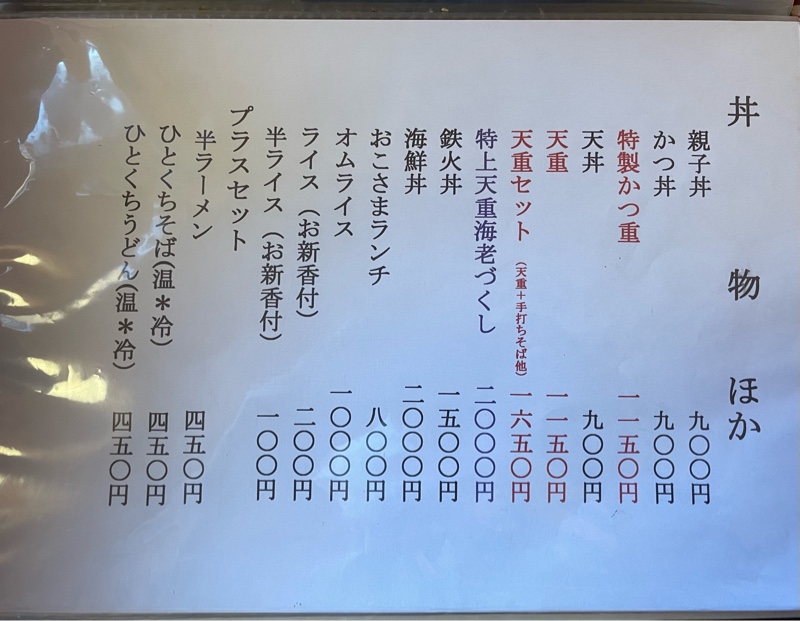 丼物 ほか
親子丼 九〇〇円
かつ丼 九〇〇円
特製かつ重 一一五〇円
天丼 九〇〇円
天重 一一五〇円
天重セット (天重+手打ちそば他) 一六五〇円
特上天重海老づくし 二〇〇〇円
鉄火丼 一五〇〇円
海鮮丼 二〇〇〇円
おこさまランチ 八〇〇円
オムライス 一〇〇〇円
ライス(お新香付) 二〇〇円
半ライス(お新香付) 一〇〇円
プラスセット
半ラーメン 四五〇円
ひとくちそば(温*冷) 四五〇円
ひとくちうどん(温*冷) 四五〇円